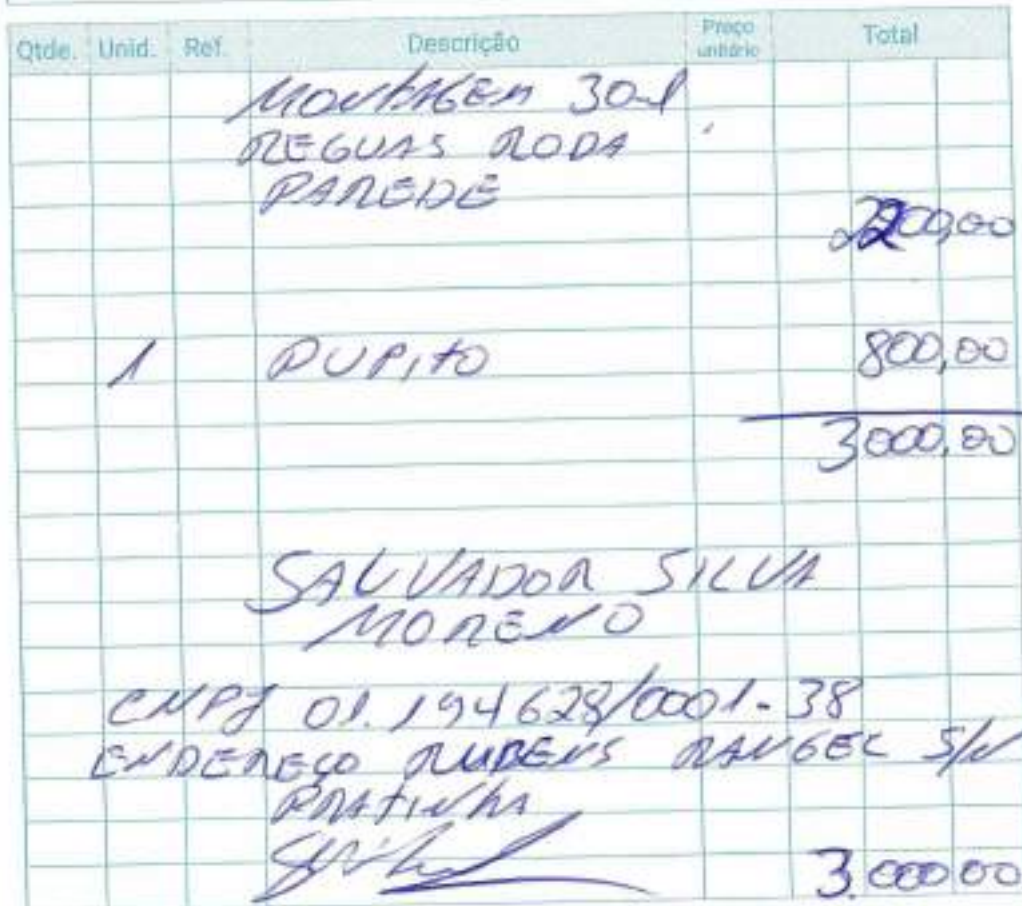 Qtde. Unid. Ref. Descrição Preço unitário Total
MONTAGEM
REGUAS RODA
PAREDE
2200,00
1 PUPITO 800,00
3000,00
SALVADOR SILVA
MORENO
CNPJ 01.194628/0001-38
ENDEREÇO RUBENS RANGEL S/N
PRATINHA
3.000 00